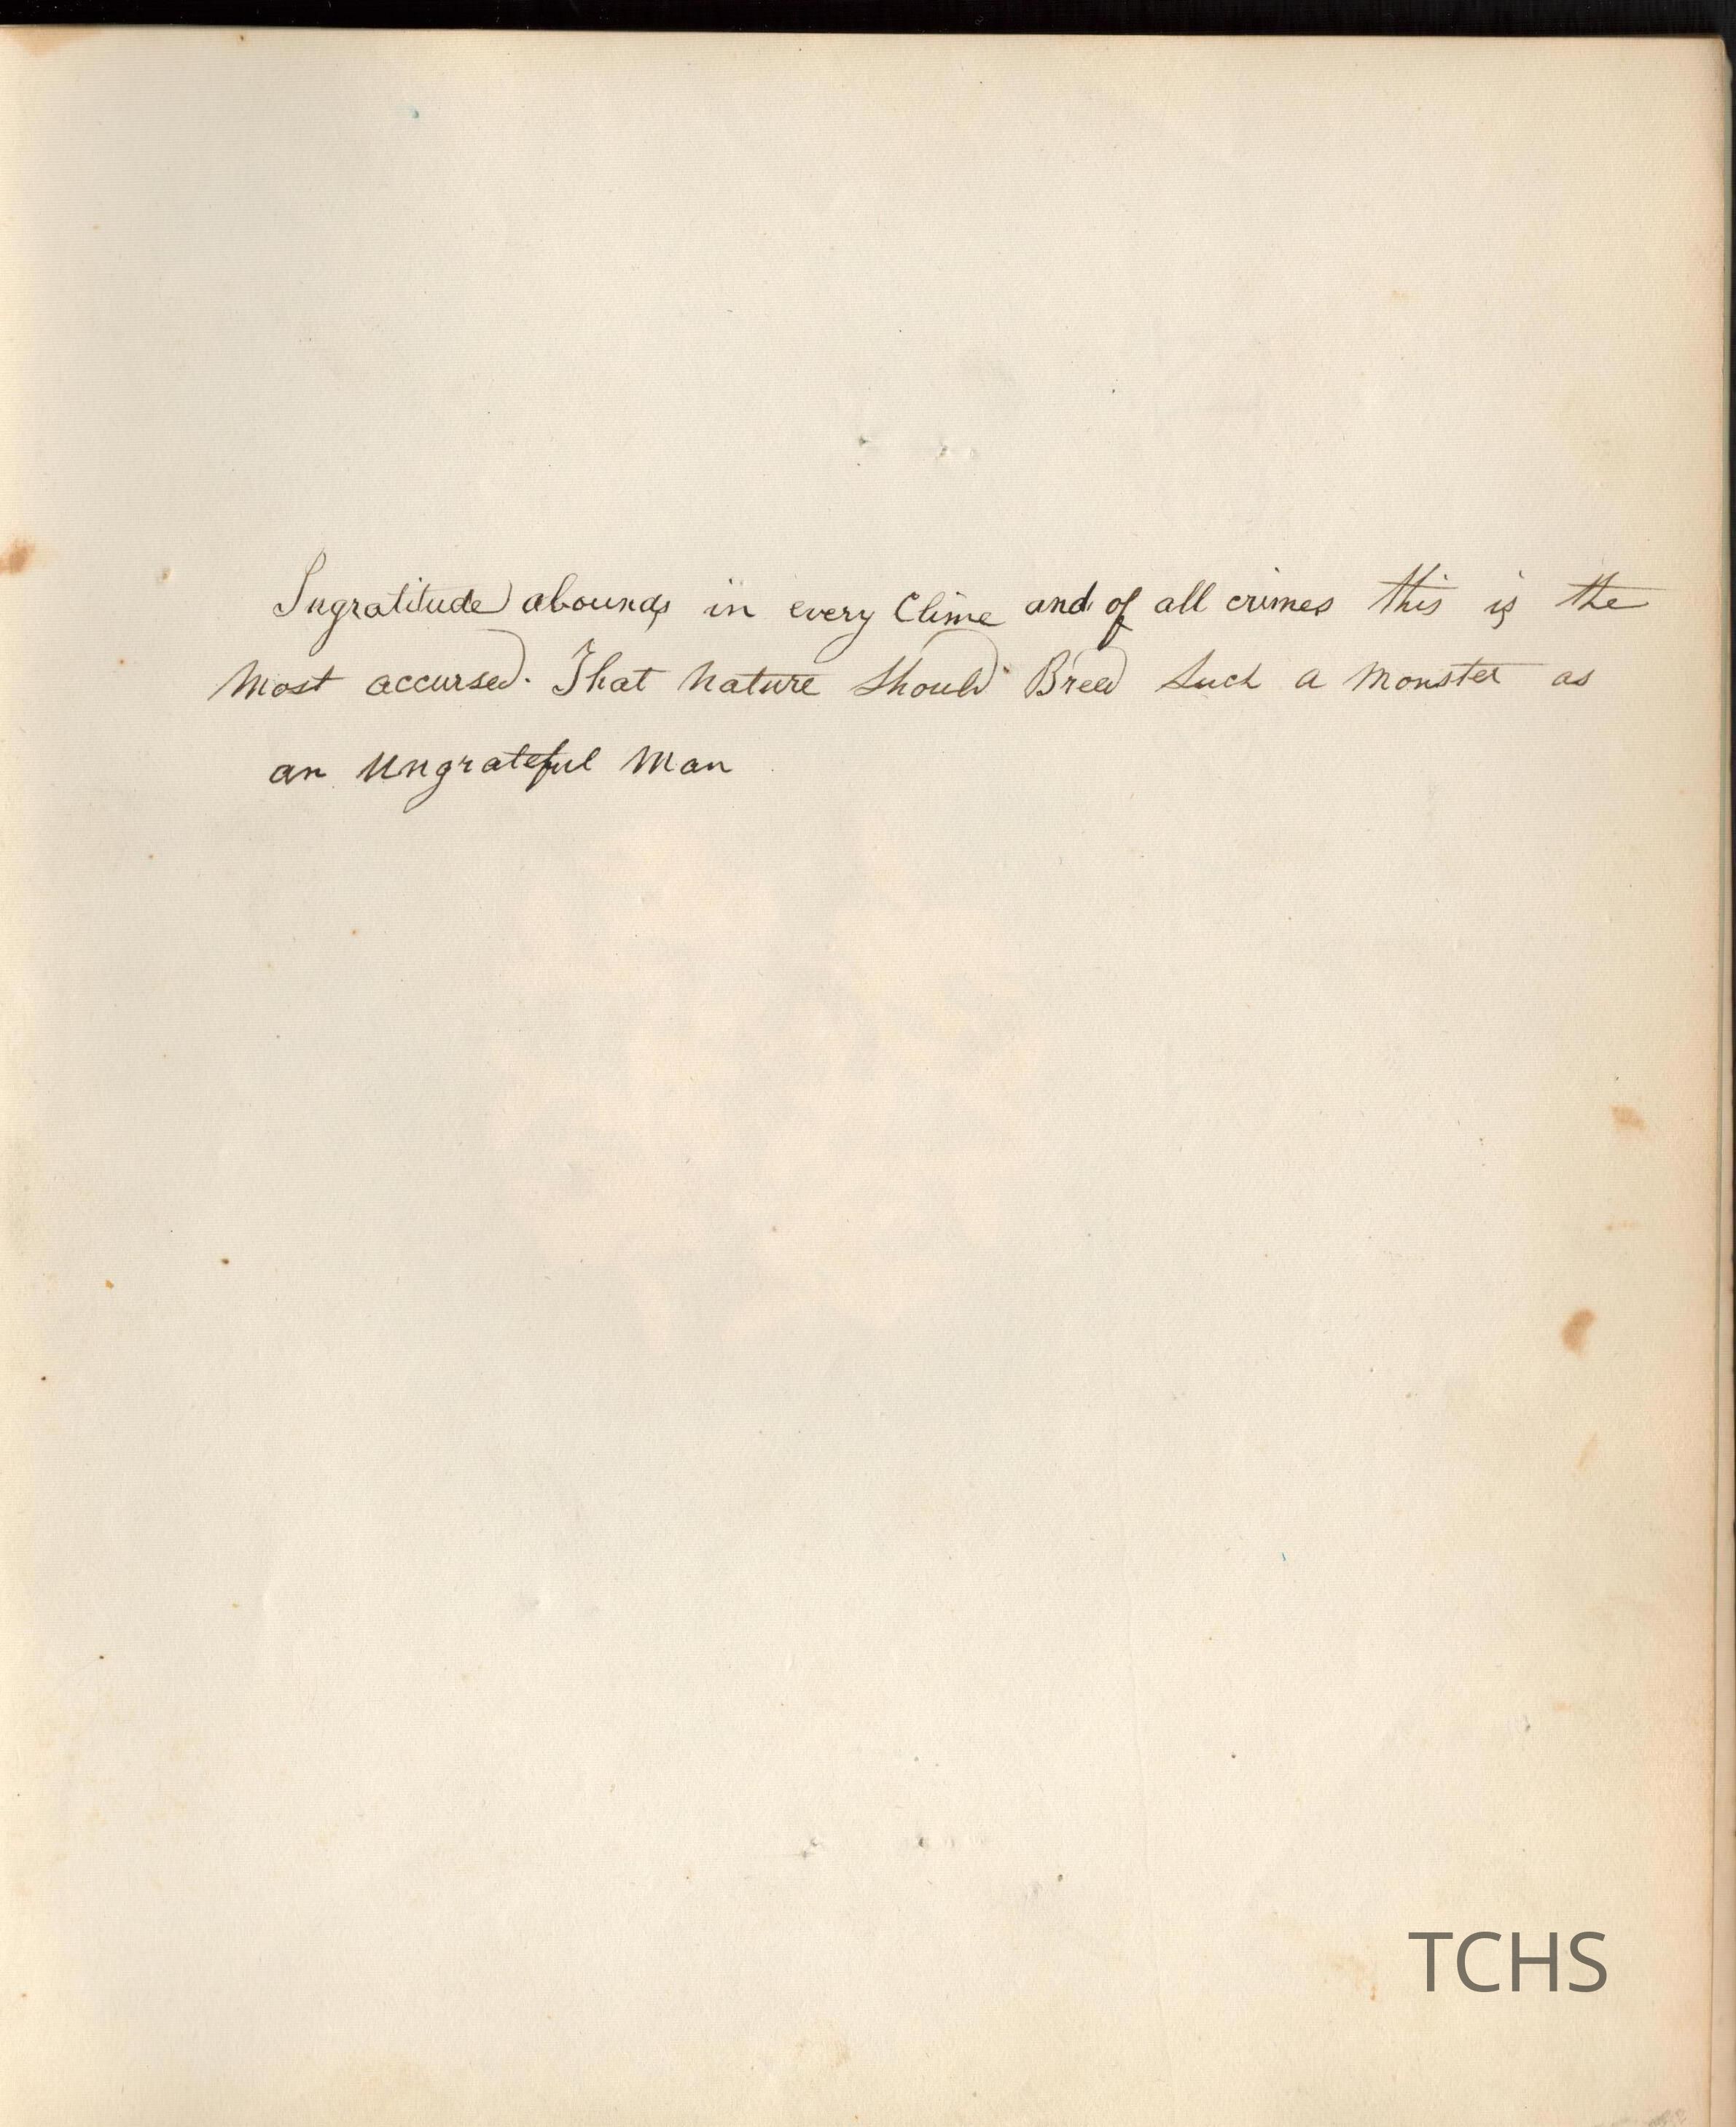 Ingratitude abounds in every Clime and of all crimes this is the
Most accursed. That Nature should Breed Such a Monster as
an Ungrateful Man
TCHS